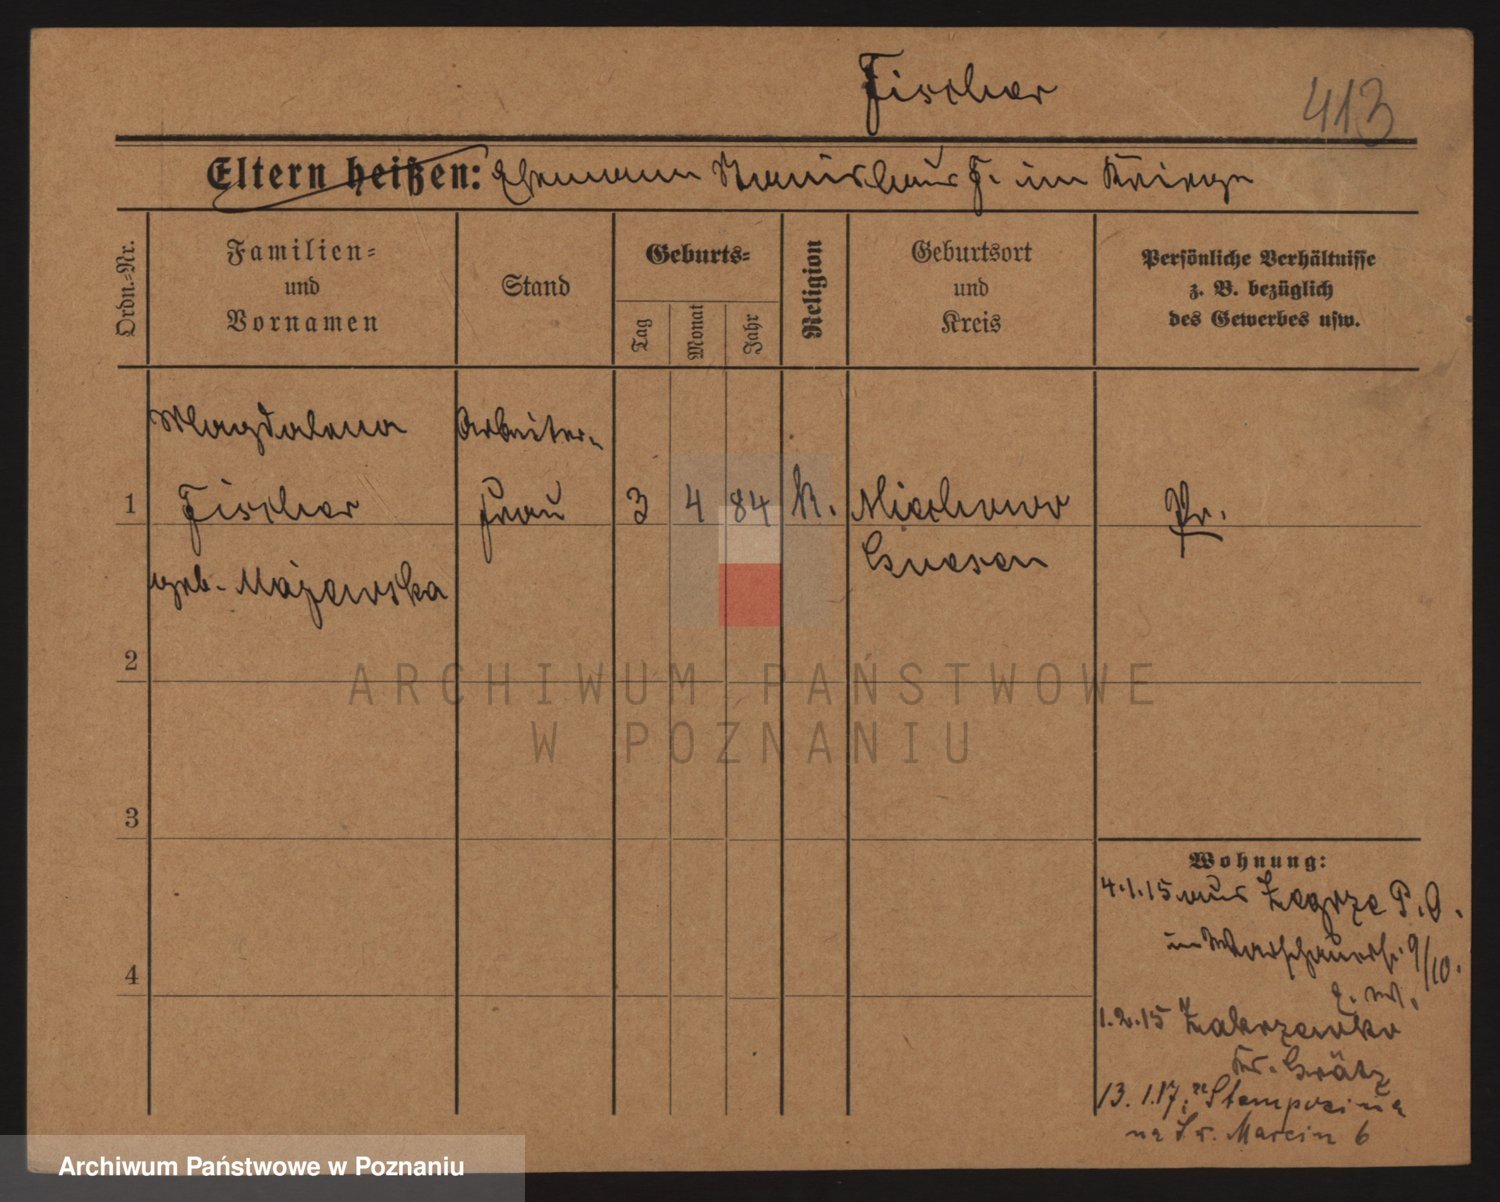 Fischer
413
Eltern heißen: Ehemann Stanislaus F. im Kriege
Ordn.-Nr.
Familien-
und
Vornamen
Stand
Geburts-
Tag
Monat
Jahr
Religion
Geburtsort
und
Kreis
Persönliche Verhältnisse
z. B. bezüglich
des Gewerbes usw.
Magdalena
Arbeiter-
1
Fischer
Frau
3
4
84
K.
Miechowo
Pr.
Gnesen
geb. Majewska
2
ARCHIWUM PAŃSTWOWE
W POZNANIU
3
Wohnung:
4.1.15 aus Zegrze P. O.
in Warschauerstr. 9/10.
4
1.2.15 Zakrzewko
Kr. Grätz
13. 1.17. Stempocina
na Św. Marcin 6
Archiwum Państwowe w Poznaniu